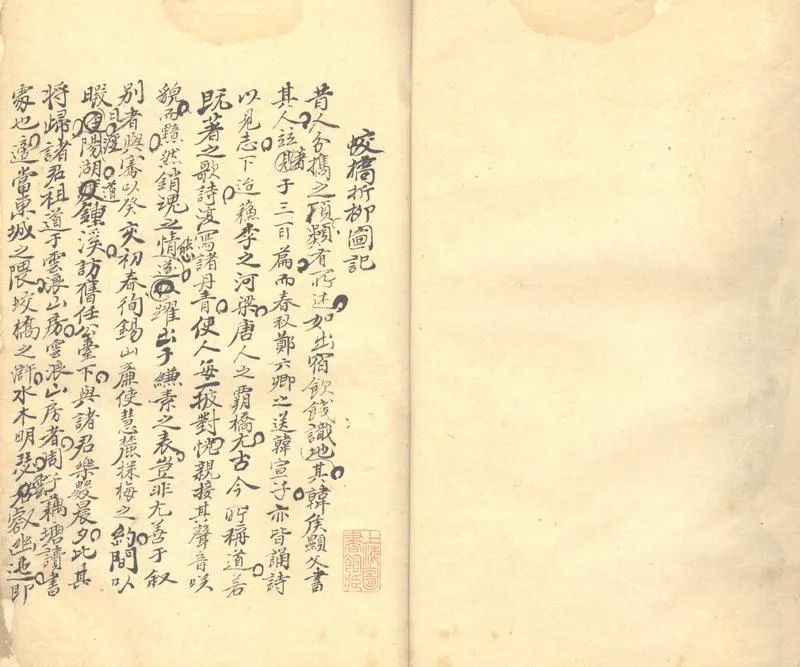 蛟橋折柳圖記
昔人分攜之頃類有所述如出宿飲餞識地其韓侯顯父書
其人竝著于三百篇而春秋鄭六卿之送韓宣子亦皆誦詩
以見志下迨蘇李之河梁唐人之霸橋尤古今所稱道若
既著之歌詩復寫諸丹青使人每一披對怳親接其聲音咲
貌而黯然銷魂之情態遂躍出于縑素之表豈非尤善于叙
別者與騫以癸亥初春徇錫山廉使慧麓探梅之約間以
暇日渡陽湖道鍾溪訪舊任公臺下與諸君樂數晨夕比其
將歸諸君祖道于雲浪山房雲浪山房者周子藕塘讀書
處也適當東城之隈蛟橋之滸水木明瑟幽迤即
上海圖書館藏